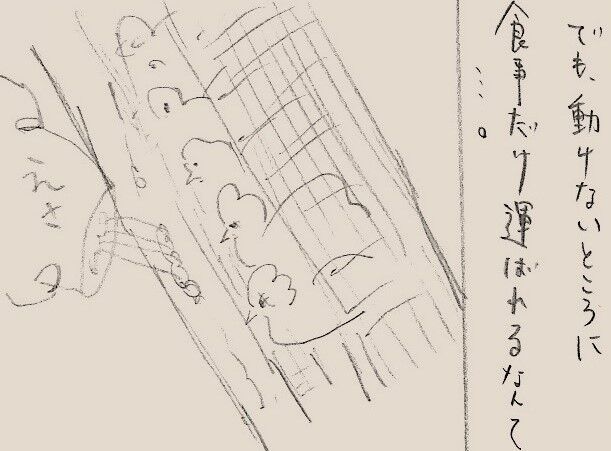 でも、動けないところに
食事だけ運ばれるなんて
…。
えさ